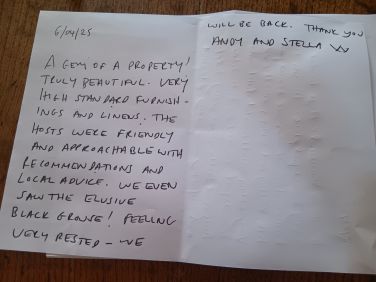 6/04/25
A GEM OF A PROPERTY!
TRULY BEAUTIFUL. VERY
HIGH STANDARD FURNISH-
INGS AND LINENS. THE
HOSTS WERE FRIENDLY
AND APPROACHABLE WITH
RECOMMENDATIONS AND
LOCAL ADVICE. WE EVEN
SAW THE ELUSIVE
BLACK GROUSE! FEELING
VERY RESTED - WE
WILL BE BACK. THANK YOU
ANDY AND STELLA